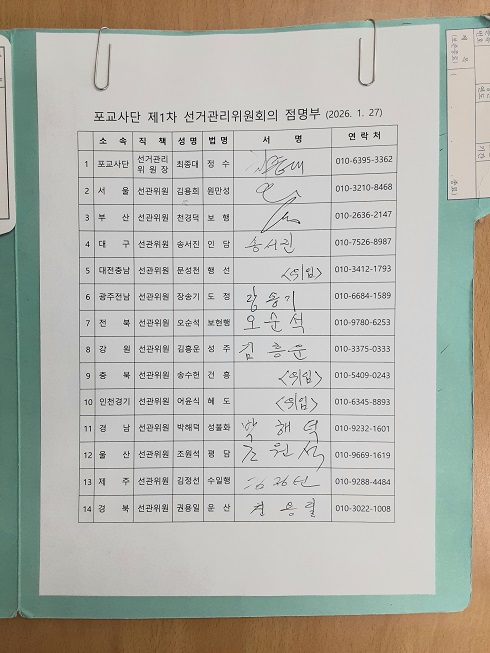 포교사단 제1차 선거관리위원회의 점명부 (2026. 1. 27)
소 속 직 책 성 명 법 명 서 명 연 락 처
1 포교사단 선거관리위 원 장 최종대 정 수 010-6395-3362
2 서 울 선관위원 김용희 원만성 010-3210-8468
3 부 산 선관위원 천경덕 보 행 010-2636-2147
4 대 구 선관위원 송서진 인 담 송서진 010-7526-8987
5 대전충남 선관위원 문성천 행 선 <위임> 010-3412-1793
6 광주전남 선관위원 장송기 도 정 장송기 010-6684-1589
7 전 북 선관위원 오순석 보현행 오순석 010-9780-6253
8 강 원 선관위원 김흥운 성 주 김흥운 010-3375-0333
9 충 북 선관위원 송수헌 건 흥 <위임> 010-5409-0243
10 인천경기 선관위원 어윤식 혜 도 <위임> 010-6345-8893
11 경 남 선관위원 박해덕 성불화 박해덕 010-9232-1601
12 울 산 선관위원 조원석 평 담 조원석 010-9669-1619
13 제 주 선관위원 김정선 수일행 010-9288-4484
14 경 북 선관위원 권용일 운 산 권용일 010-3022-1008